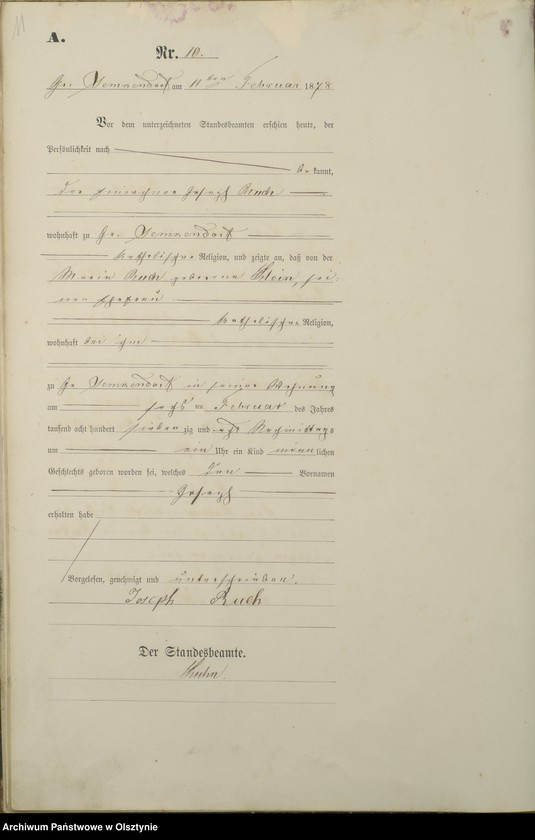 A.
Nr. 10.
Gr. Lemkendorf am 11ten Februar 1878
Vor dem unterzeichneten Standesbeamten erschien heute, der
Persönlichkeit nach
be kannt,
der Joseph Ruch
wohnhaft zu Gr. Lemkendorf
katholischer Religion, und zeigte an, daß von der
Maria Ruch geborene Klein, sei-
ner Ehefrau
katholischer Religion,
wohnhaft bei ihm
zu Gr Lemkendorf in seiner Wohnung
am sechs ten Februar des Jahres
tausend acht hundert sieben zig und acht Nachmittags
um ein Uhr ein Kind männ lichen
Geschlechts geboren worden sei, welches den Vornamen
Joseph
erhalten habe
Vorgelesen, genehmigt und unterschrieben.
Joseph Ruch
Der Standesbeamte.
Archiwum Państwowe w Olsztynie